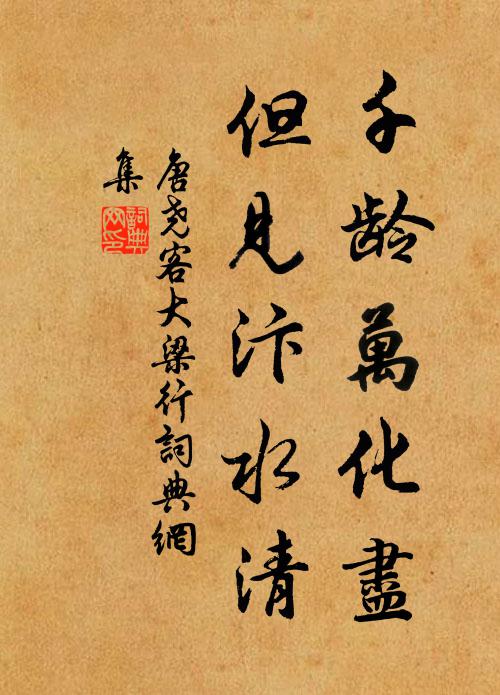 千龄萬化盡
但見汴水清
唐尧客大梁行詞典網
集
詞典
网印